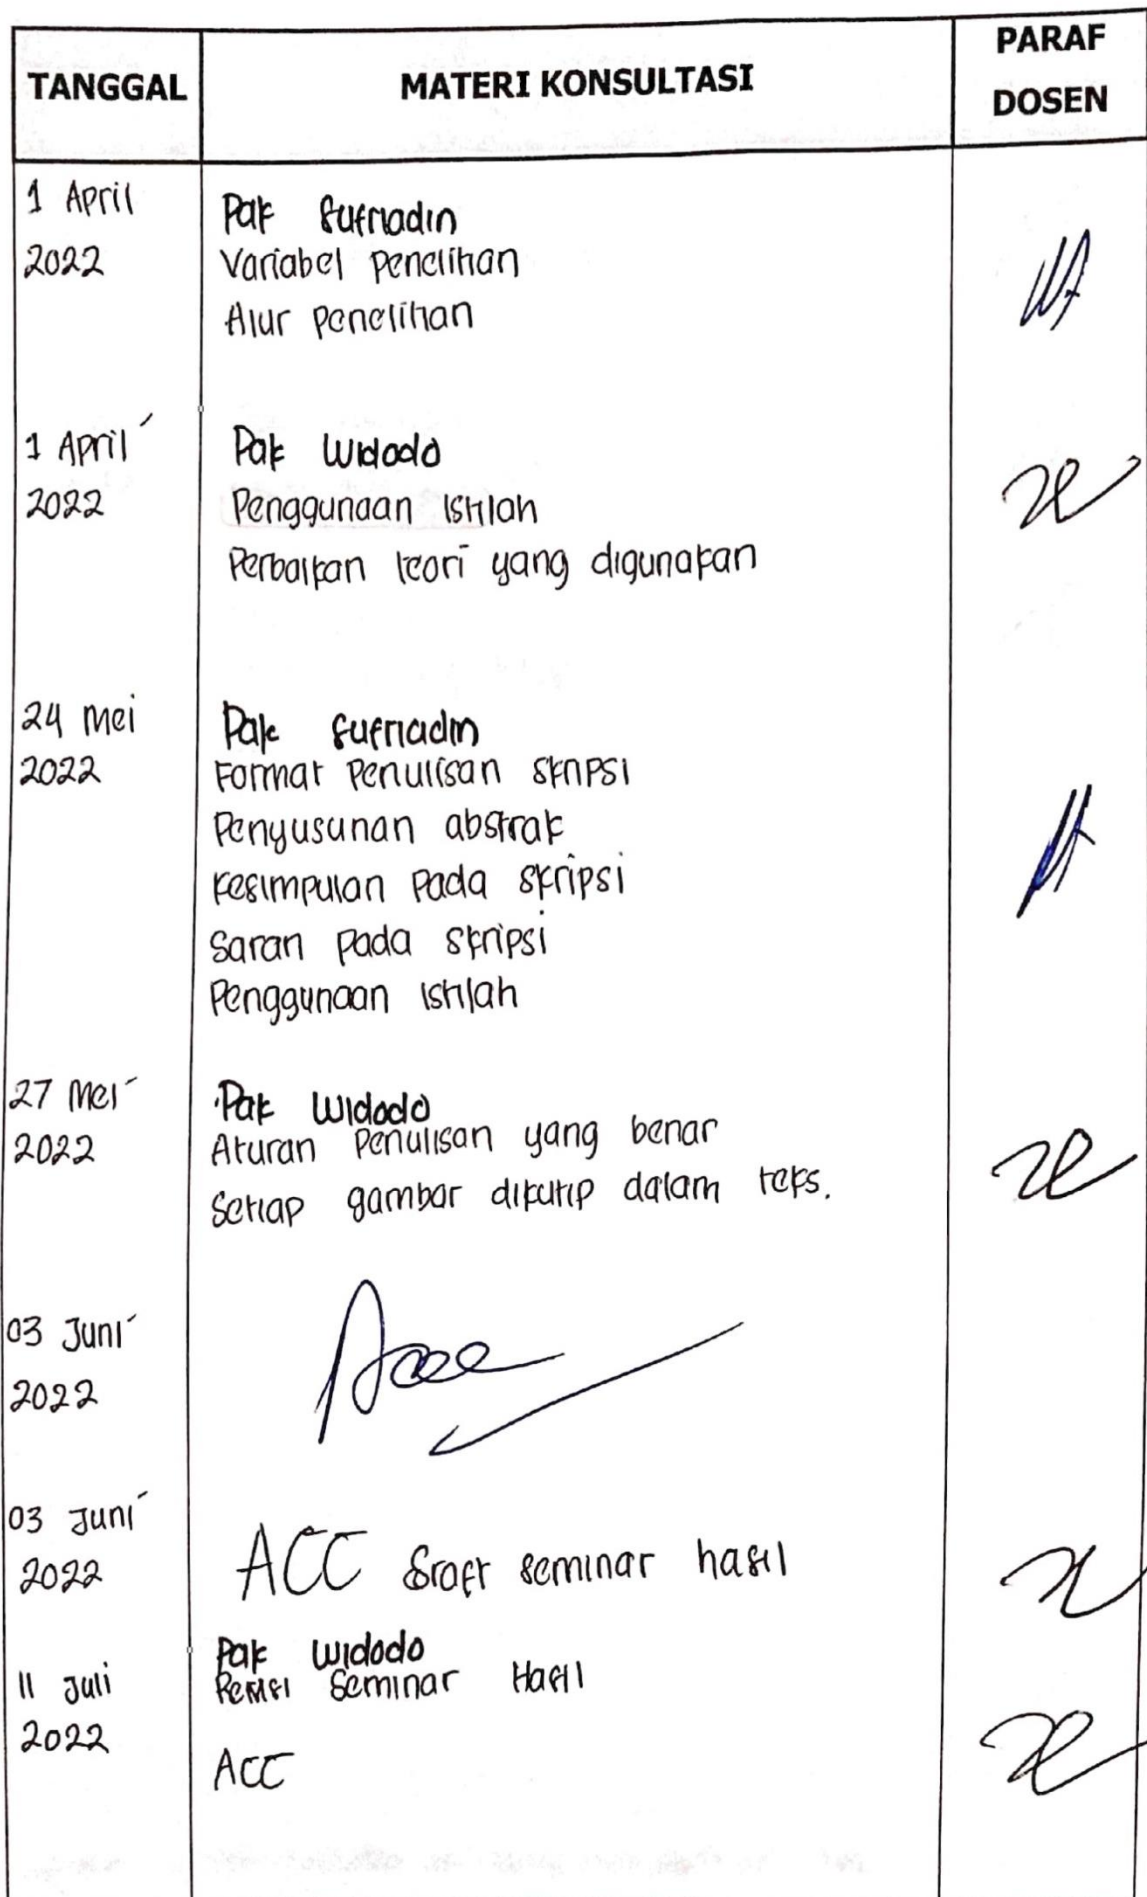 TANGGAL
MATERI KONSULTASI
PARAF
DOSEN
1 April
2022
Pak Sufriadin
Variabel Penelitian
Alur penelitian
1 April
2022
Pak Widodo
Penggunaan Istilah
Perbaikan teori yang digunakan
24 Mei
2022
Pak Sufriadin
Format Penulisan skripsi
Penyusunan abstrak
Kesimpulan Pada skripsi
Saran Pada skripsi
Penggunaan Istilah
27 Mei
2022
Pak Widodo
Aturan Penulisan yang benar
Setiap gambar dikutip dalam teks.
03 Juni
2022
Acc
03 Juni
2022
ACC Draft seminar hasil
11 Juli
2022
Pak Widodo
Revisi Seminar Hasil
ACC